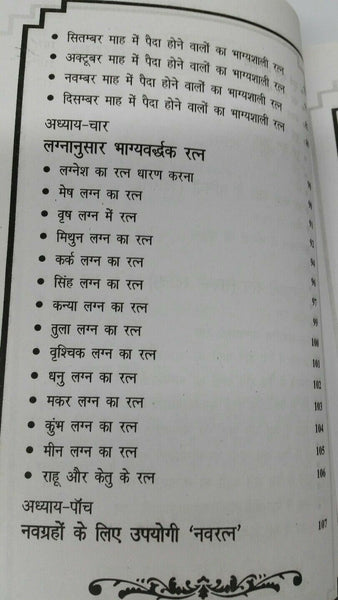 • सितम्बर माह में पैदा होने वालों का भाग्यशाली रत्न
• अक्टूबर माह में पैदा होने वालों का भाग्यशाली रत्न
• नवम्बर माह में पैदा होने वालों का भाग्यशाली रत्न
• दिसम्बर माह में पैदा होने वालों का भाग्यशाली रत्न
अध्याय-चार
लग्नानुसार भाग्यवर्द्धक रत्न
• लग्नेश का रत्न धारण करना
• मेष लग्न का रत्न 90
• वृष लग्न में रत्न 91
• मिथुन लग्न का रत्न 92
• कर्क लग्न का रत्न 94
• सिंह लग्न का रत्न 96
• कन्या लग्न का रत्न 97
• तुला लग्न का रत्न 99
• वृश्चिक लग्न का रत्न 100
• धनु लग्न का रत्न 101
• मकर लग्न का रत्न 102
• कुंभ लग्न का रत्न 103
• मीन लग्न का रत्न 104
• राहू और केतु के रत्न 105
106
अध्याय-पाँच
नवग्रहों के लिए उपयोगी ‘नवरत्न’ 107